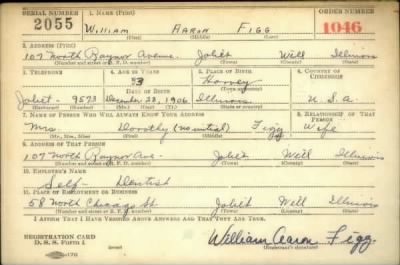 SERIAL NUMBER 1. NAME (Print) ORDER NUMBER
2055 William Aaron Figg 1046
(First) (Middle) (Last)
2. ADDRESS (Print)
107 North Raynor Avenue. Joliet Will Illinois
(Number and street or R. F. D. number) (Town) (County) (State)
3. TELEPHONE 4. AGE IN YEARS 5. PLACE OF BIRTH 6. COUNTRY OF CITIZENSHIP
33 Harvey
DATE OF BIRTH
Joliet - 9573 December 23, 1906 Illinois U.S.A.
(Exchange) (Number) (Mo.) (Day) (Yr.) (State or country)
7. NAME OF PERSON WHO WILL ALWAYS KNOW YOUR ADDRESS 8. RELATIONSHIP OF THAT PERSON
Mrs. Dorothy (no initial) Figg Wife
(Mr., Mrs., Miss) (First) (Middle) (Last)
9. ADDRESS OF THAT PERSON
107 North Raynor Ave. Joliet Will Illinois
(Number and street or R. F. D. number) (Town) (County) (State)
10. EMPLOYER'S NAME
Self - Dentist
11. PLACE OF EMPLOYMENT OR BUSINESS
58 North Chicago St. Joliet Will Illinois
(Number and street or R. F. D. number) (Town) (County) (State)
I AFFIRM THAT I HAVE VERIFIED ABOVE ANSWERS AND THAT THEY ARE TRUE.
REGISTRATION CARD
D. S. S. Form 1
William Aaron Figg
(Registrant's signature)